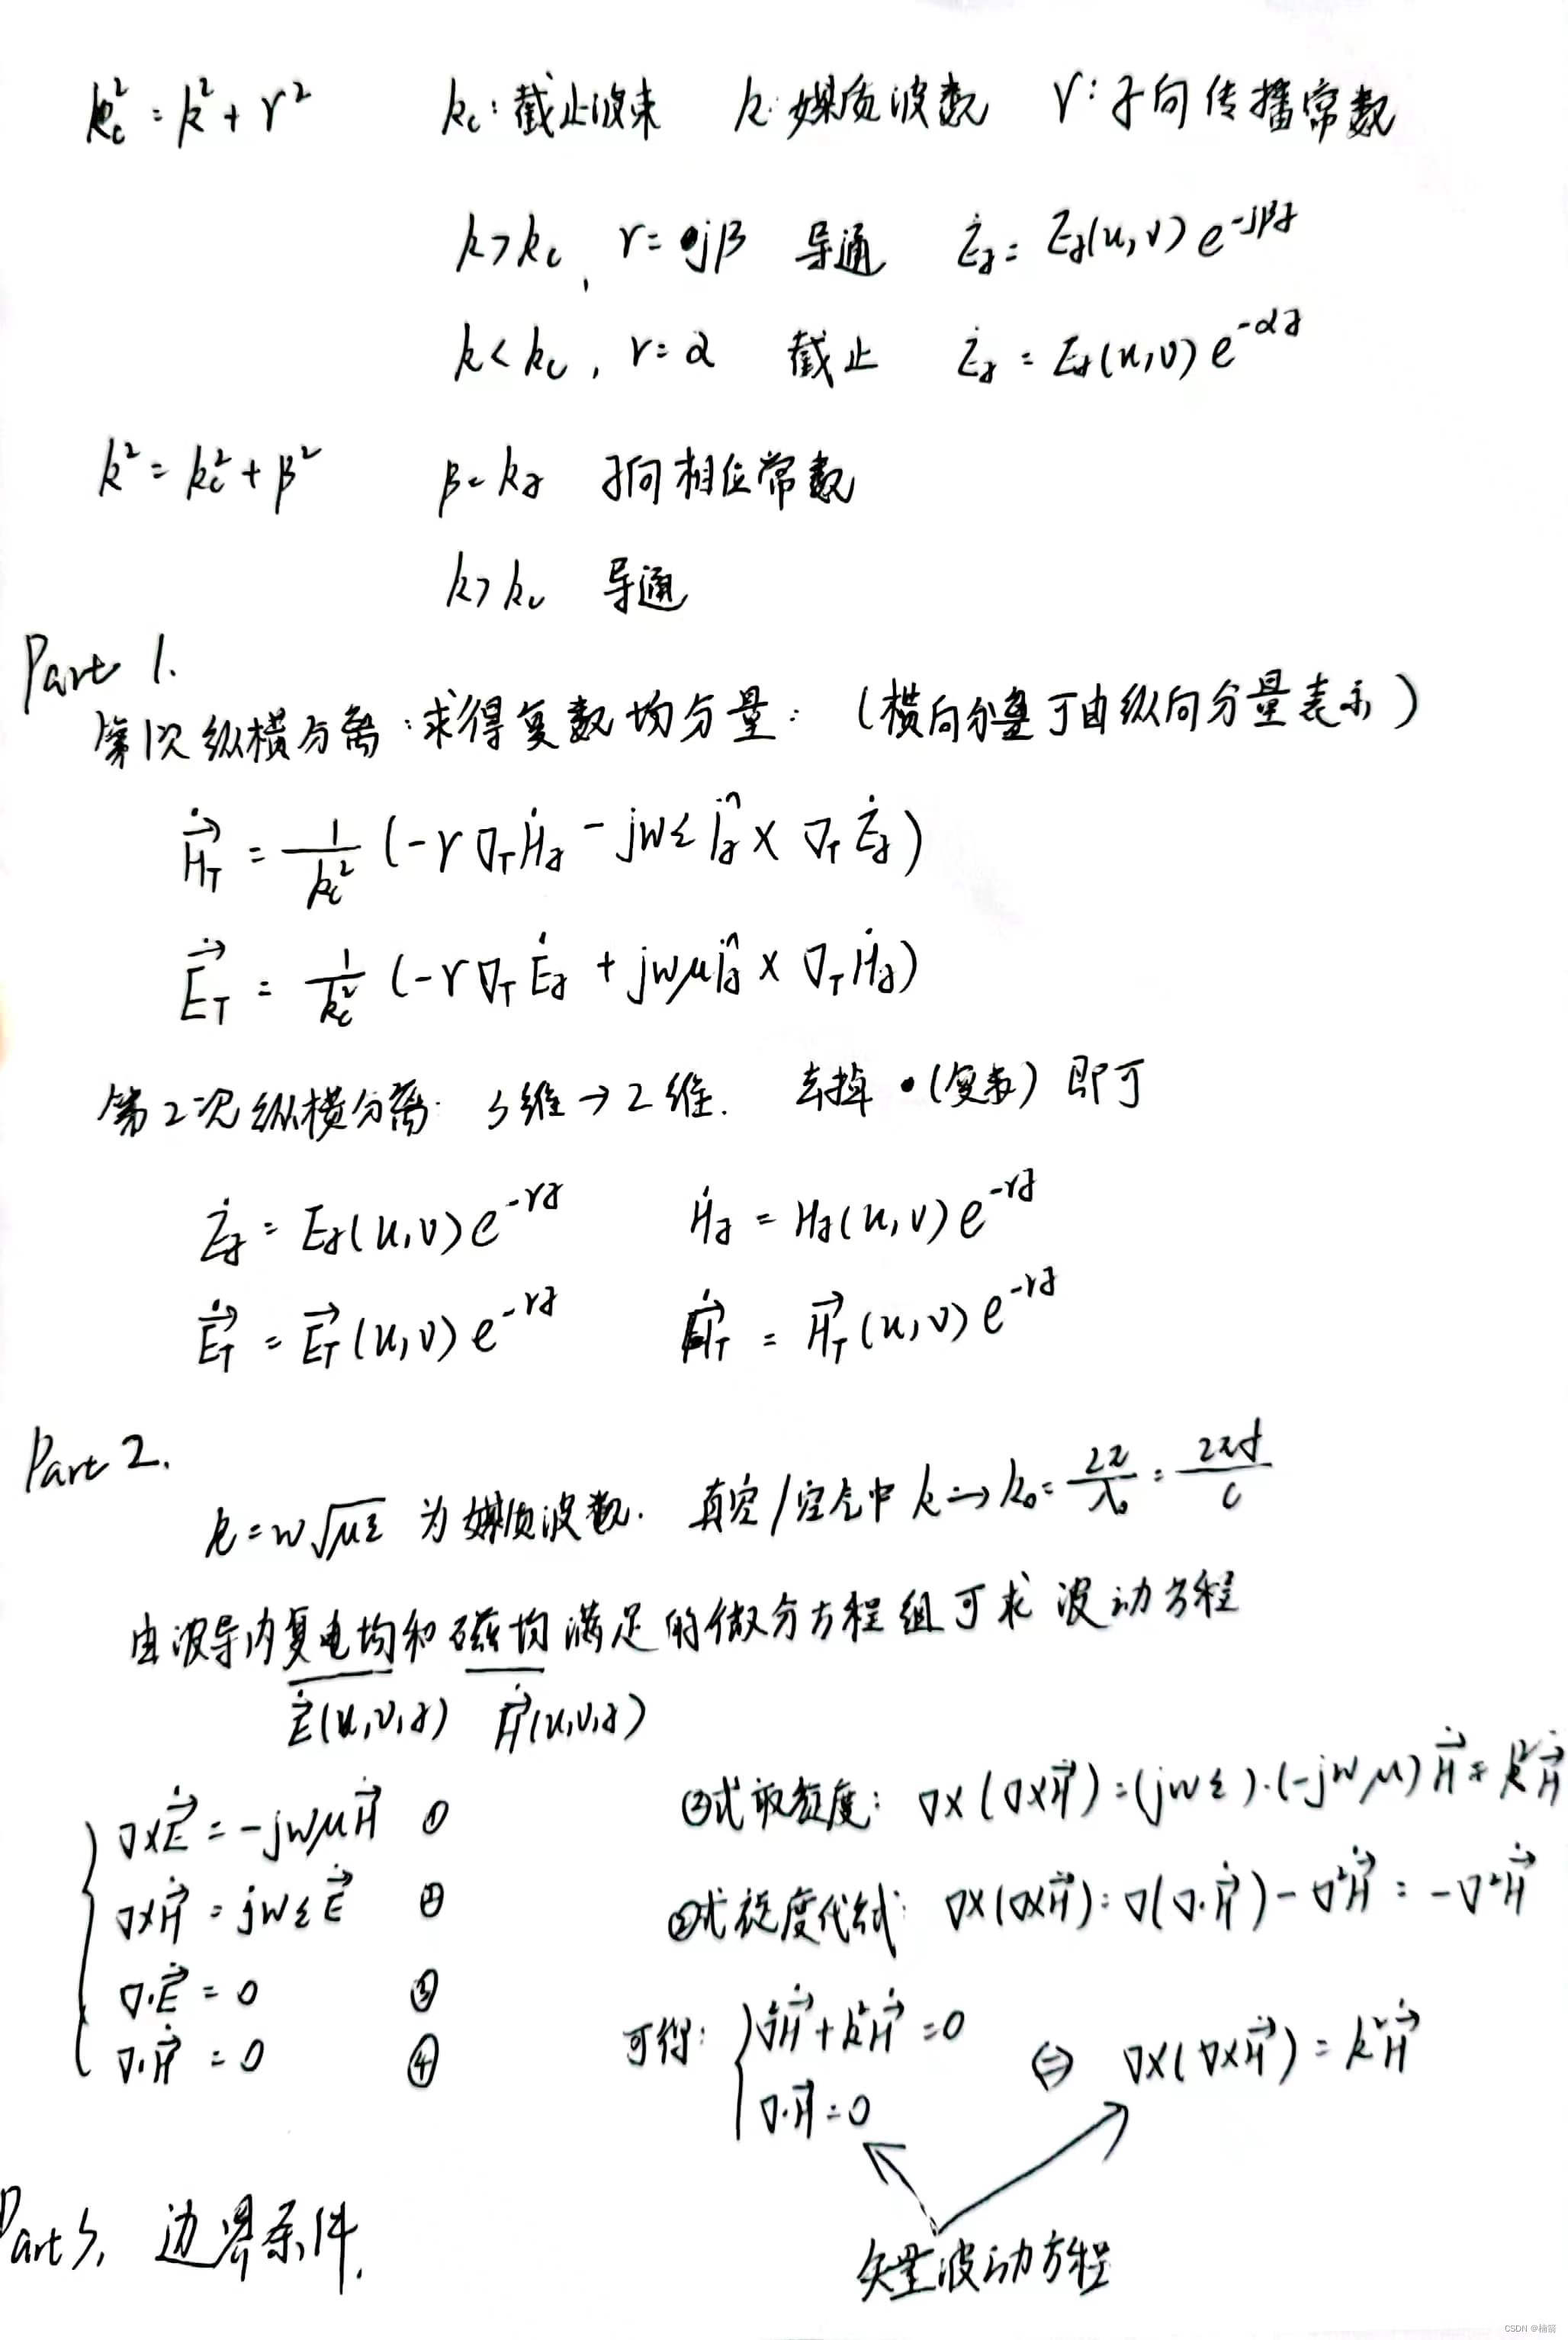 k_c² = k² + γ²  k_c: 截止波束  k: 媒质波数  γ: z向传播常数
k > k_c, γ = jβ  导通  Ė_z = E_z(u,v) e^{-jβz}
k < k_c, γ = α  截止  Ė_z = E_z(u,v) e^{-αz}
k² = k_c² + β²  β = k_z  z向相位常数
k > k_c  导通
Part 1.
第1次纵横分离:求得复数场分量: (横向分量可由纵向分量表示)
\dot{\vec{H}}_T = \frac{1}{k_c²} (-γ∇_TḢ_z - jωε î_z × ∇_TĖ_z)
\dot{\vec{E}}_T = \frac{1}{k_c²} (-γ∇_TĖ_z + jωμ î_z × ∇_TḢ_z)
第2次纵横分离: 3维→2维. 去掉 •(复数) 即可
Ė_z = E_z(u,v) e^{-γz}  Ḣ_z = H_z(u,v) e^{-γz}
\dot{\vec{E}}_T = \vec{E}_T(u,v) e^{-γz}  \dot{\vec{H}}_T = \vec{H}_T(u,v) e^{-γz}
Part 2.
k = ω√(με) 为媒质波数. 真空/空气中 k → k₀ = \frac{2π}{λ₀} = \frac{2πf}{c}
由波导内复电场和磁场满足的微分方程组可求 波动方程
\dot{\vec{E}}(u,v,z)  \dot{\vec{H}}(u,v,z)
∇×\dot{\vec{E}} = -jωμ\dot{\vec{H}} ①
∇×\dot{\vec{H}} = jωε\dot{\vec{E}} ②
∇·\dot{\vec{E}} = 0 ③
∇·\dot{\vec{H}} = 0 ④
②式取旋度: ∇×(∇×\dot{\vec{H}}) = (jωε)·(-jωμ)\dot{\vec{H}} = k²\dot{\vec{H}}
②式旋度代入: ∇×(∇×\dot{\vec{H}}) = ∇(∇·\dot{\vec{H}}) - ∇²\dot{\vec{H}} = -∇²\dot{\vec{H}}
可得: ∇²\dot{\vec{H}} + k²\dot{\vec{H}} = 0  ⇔  ∇×(∇×\dot{\vec{H}}) = k²\dot{\vec{H}}
∇·\dot{\vec{H}} = 0
矢量波动方程
Part 3. 边界条件.